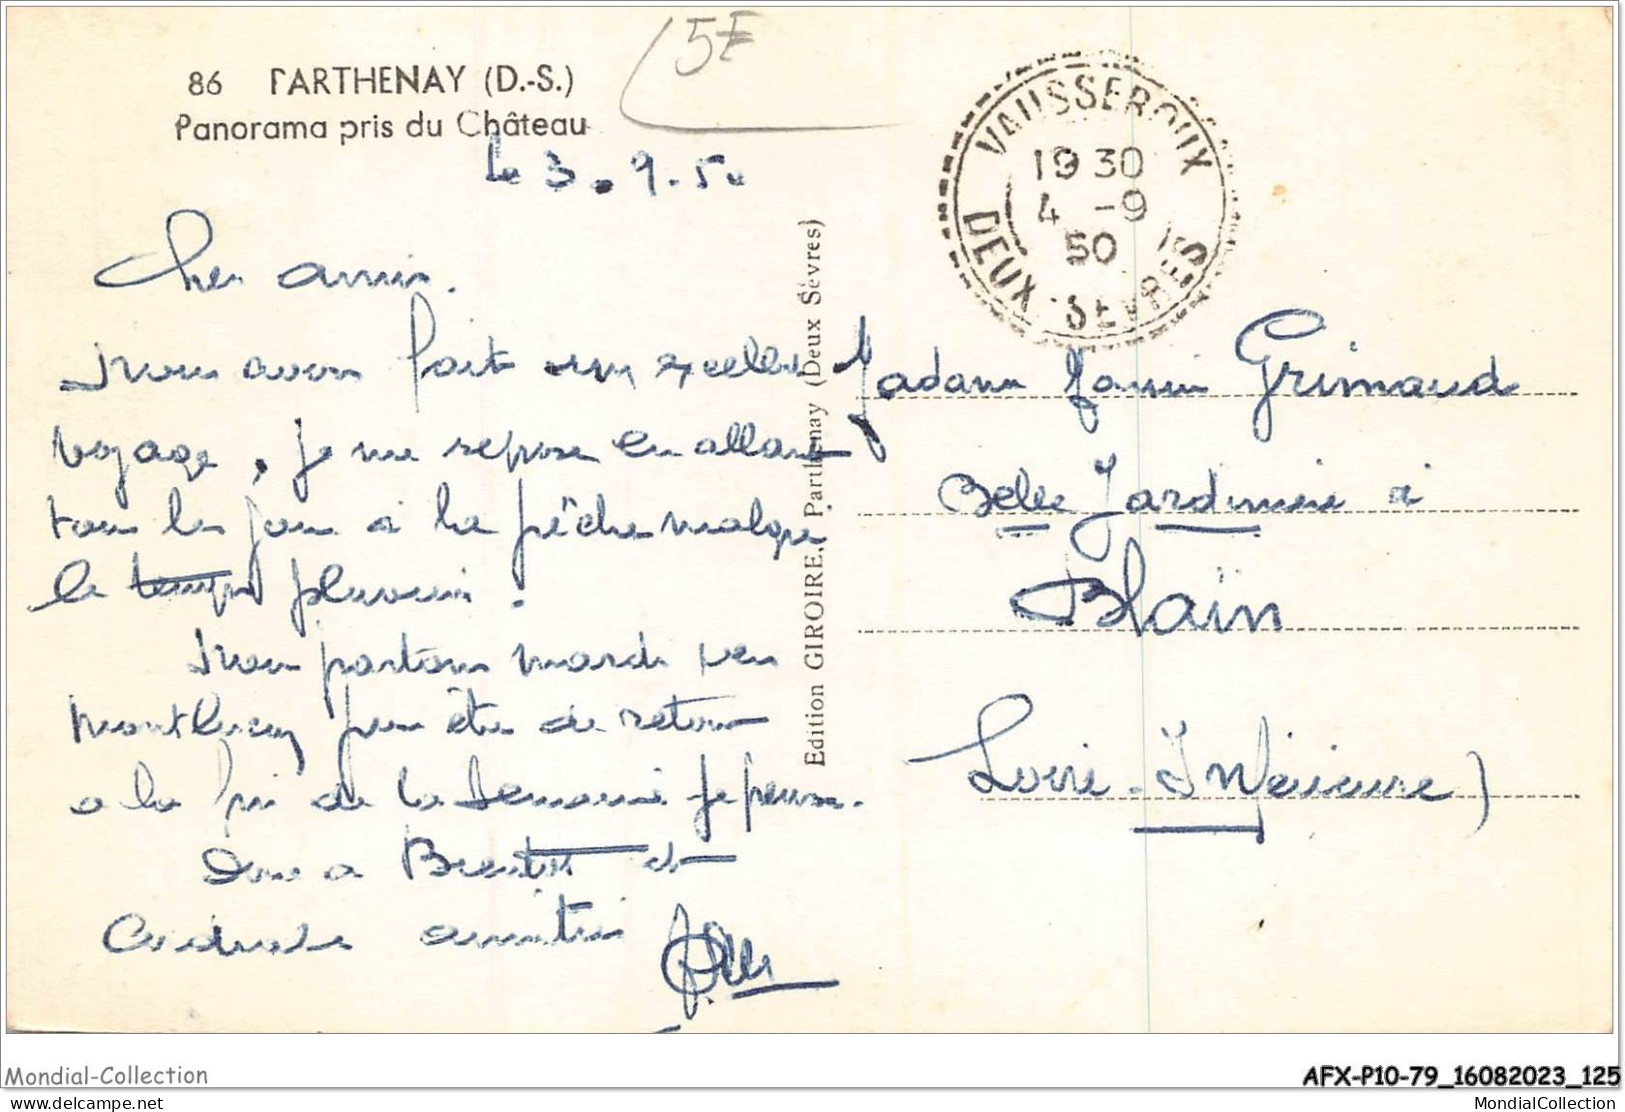 5F
86 PARTHENAY (D.-S.)
Panorama pris du Château
le 3.9.50
Cher amis.
Nous avons fait un excellent
voyage, je me repose en allant
tous les jours à la pêche malgré
le temps pluvieux.
Nous partons mardi pour
Montluçon peu être de retour
a la fin de la Semaine je pense.
Donc a Bientôt et
Cordiale amitié
Edition GIROIRE, Parthenay (Deux Sèvres)
VAUSSEROUX
19 30
4 -9
50
DEUX-SEVRES
Madame Grimaud
Belle Jardinière à
Blain
Loire-Inférieure)
Mondial-Collection
AFX-P10-79_16082023_125
delcampe.net
MondialCollection